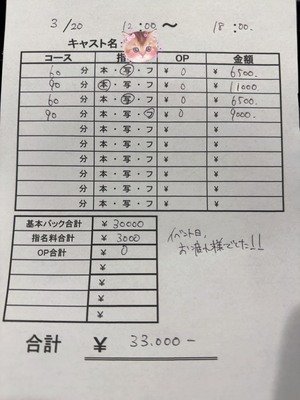 3/20 12:00〜18:00.
キャスト名
コース 指 OP 金額
60分 本・写・フ ¥0 ¥6500-
90分 本・写・フ ¥0 ¥11000
60分 本・写・フ ¥0 ¥6500-
90分 本・写・フ ¥0 ¥9000-
分 本・写・フ ¥ ¥
分 本・写・フ ¥ ¥
分 本・写・フ ¥ ¥
分 本・写・フ ¥ ¥
分 本・写・フ ¥ ¥
分 本・写・フ ¥ ¥
基本バック合計 ¥30000
指名料合計 ¥3000
OP合計 ¥0
¥
¥
¥
イベント日、
お疲れ様でした!!
合計 ¥33.000-